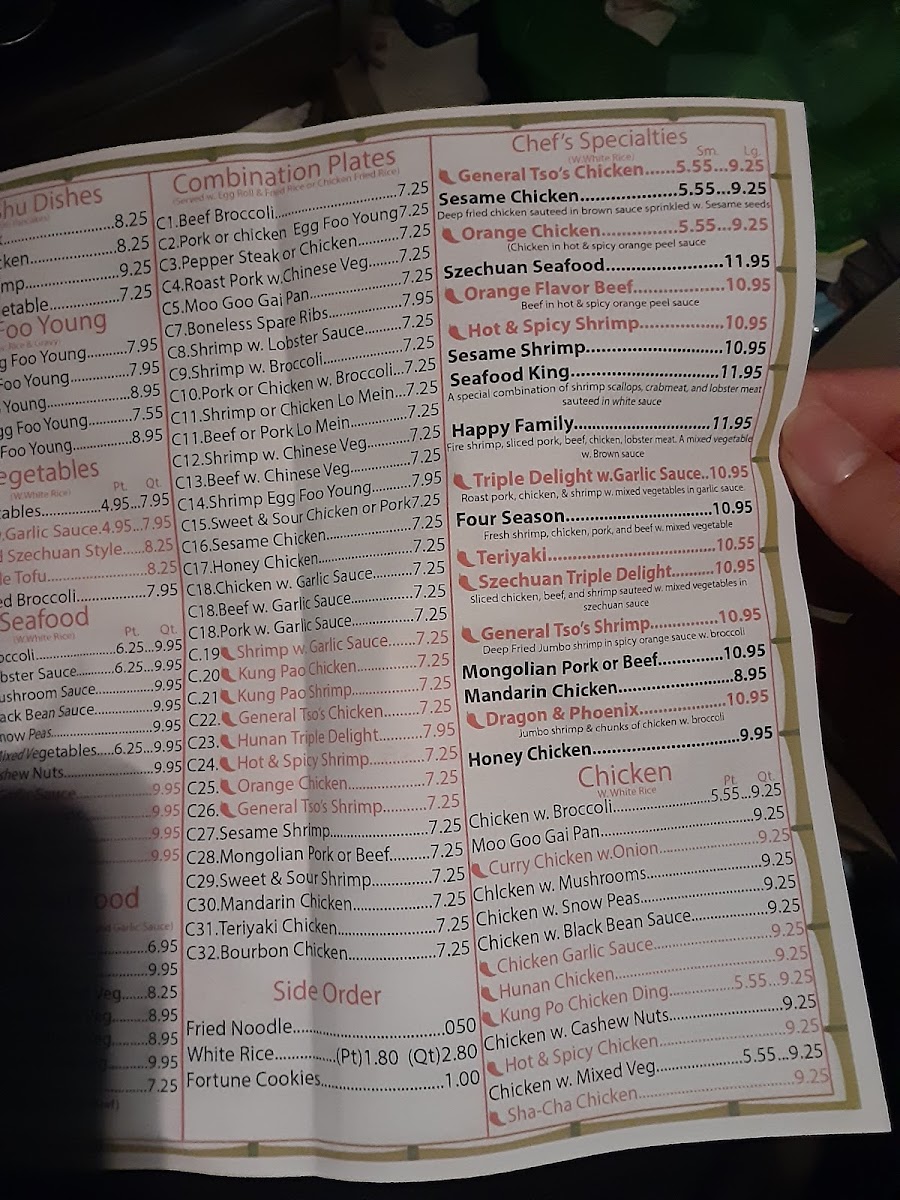 hu Dishes
8.25
ken 8.25
mp 9.25
etable 7.25
Foo Young
g Foo Young 7.95
Foo Young 7.95
Young 8.95
gg Foo Young 7.55
Foo Young 8.95
egetables
(W.White Rice)
Pt. Qt.
ables 4.95...7.95
.Garlic Sauce.4.95...7.95
d Szechuan Style 8.25
le Tofu 8.25
ed Broccoli 7.95
Seafood
(W.White Rice)
Pt. Qt.
occoli 6.25...9.95
bster Sauce 6.25...9.95
ushroom Sauce 9.95
ack Bean Sauce 9.95
now Peas 9.95
Mixed Vegetables 6.25...9.95
shew Nuts 9.95
9.95
9.95
9.95
9.95
ood
d Garlic Sauce)
6.95
9.95
Veg 8.25
8.95
8.95
9.95
7.25
Combination Plates
(Served w. Egg Roll & Fried Rice or Chicken Fried Rice)
C1.Beef Broccoli 7.25
C2.Pork or chicken Egg Foo Young 7.25
C3.Pepper Steak or Chicken 7.25
C4.Roast Pork w.Chinese Veg 7.25
C5.Moo Goo Gai Pan 7.25
C7.Boneless Spare Ribs 7.95
C8.Shrimp w. Lobster Sauce 7.25
C9.Shrimp w. Broccoli 7.25
C10.Pork or Chicken w. Broccoli 7.25
C11.Shrimp or Chicken Lo Mein 7.25
C11.Beef or Pork Lo Mein 7.25
C12.Shrimp w. Chinese Veg 7.25
C13.Beef w. Chinese Veg 7.25
C14.Shrimp Egg Foo Young 7.95
C15.Sweet & Sour Chicken or Pork 7.25
C16.Sesame Chicken 7.25
C17.Honey Chicken 7.25
C18.Chicken w. Garlic Sauce 7.25
C18.Beef w. Garlic Sauce 7.25
C18.Pork w. Garlic Sauce 7.25
C.19 Shrimp w Garlic Sauce 7.25
C.20 Kung Pao Chicken 7.25
C.21 Kung Pao Shrimp 7.25
C22. General Tso's Chicken 7.25
C23. Hunan Triple Delight 7.95
C24. Hot & Spicy Shrimp 7.25
C25. Orange Chicken 7.25
C26. General Tso's Shrimp 7.25
C27.Sesame Shrimp 7.25
C28.Mongolian Pork or Beef 7.25
C29.Sweet & Sour Shrimp 7.25
C30.Mandarin Chicken 7.25
C31.Teriyaki Chicken 7.25
C32.Bourbon Chicken 7.25
Side Order
Fried Noodle 050
White Rice (Pt)1.80 (Qt)2.80
Fortune Cookies 1.00
Chef's Specialties
(W.White Rice)
Sm. Lg.
General Tso's Chicken 5.55...9.25
Sesame Chicken 5.55...9.25
Deep fried chicken sauteed in brown sauce sprinkled w. Sesame seeds
Orange Chicken 5.55...9.25
(Chicken in hot & spicy orange peel sauce
Szechuan Seafood 11.95
Orange Flavor Beef 10.95
Beef in hot & spicy orange peel sauce
Hot & Spicy Shrimp 10.95
Sesame Shrimp 10.95
Seafood King 11.95
A special combination of shrimp scallops, crabmeat, and lobster meat
sauteed in white sauce
Happy Family 11.95
Fire shrimp, sliced pork, beef, chicken, lobster meat. A mixed vegetable
w. Brown sauce
Triple Delight w.Garlic Sauce..10.95
Roast pork, chicken, & shrimp w. mixed vegetables in garlic sauce
Four Season 10.95
Fresh shrimp, chicken, pork, and beef w. mixed vegetable
Teriyaki 10.55
Szechuan Triple Delight 10.95
Sliced chicken, beef, and shrimp sauteed w. mixed vegetables in
szechuan sauce
General Tso's Shrimp 10.95
Deep Fried Jumbo shrimp in spicy orange sauce w. broccoli
Mongolian Pork or Beef 10.95
Mandarin Chicken 8.95
Dragon & Phoenix 10.95
Jumbo shrimp & chunks of chicken w. broccoli
Honey Chicken 9.95
Chicken
W.White Rice
Pt. Qt.
Chicken w. Broccoli 5.55...9.25
Moo Goo Gai Pan 9.25
Curry Chicken w.Onion 9.25
Chicken w. Mushrooms 9.25
Chicken w. Snow Peas 9.25
Chicken w. Black Bean Sauce 9.25
Chicken Garlic Sauce 9.25
Hunan Chicken 9.25
Kung Po Chicken Ding 5.55...9.25
Chicken w. Cashew Nuts 9.25
Hot & Spicy Chicken 9.25
Chicken w. Mixed Veg 5.55...9.25
Sha-Cha Chicken 9.25